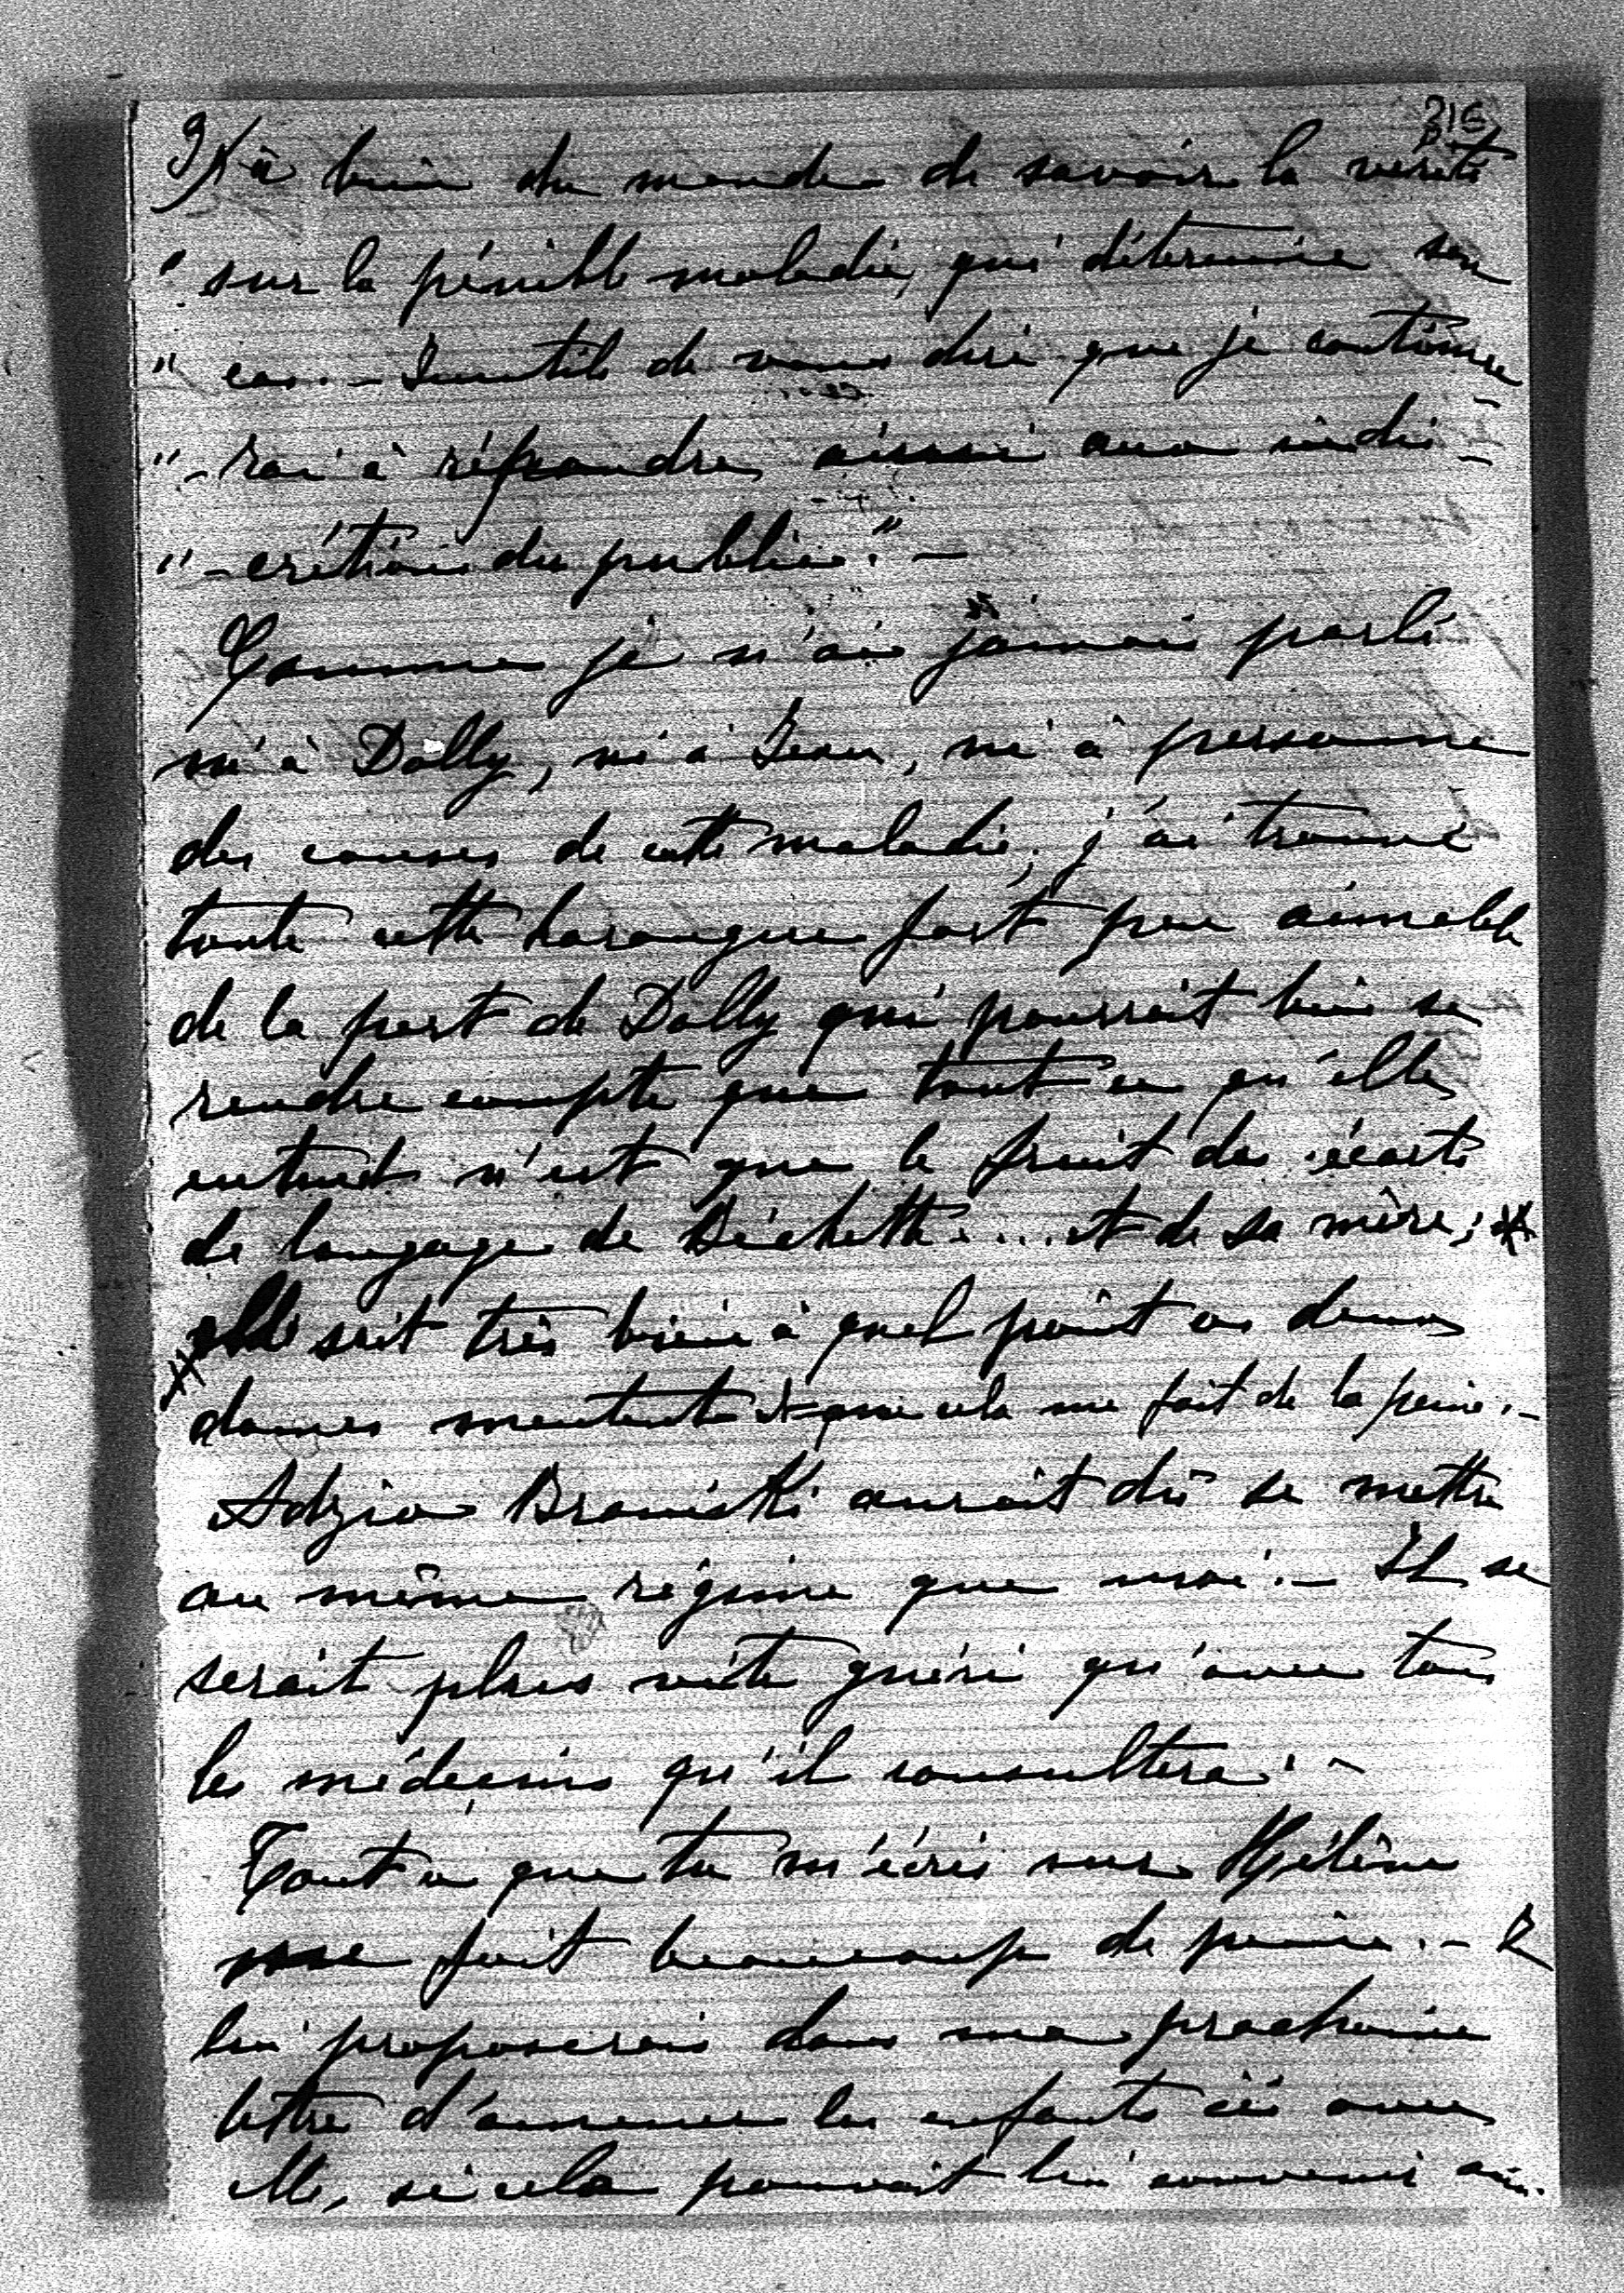 9/ à bien du monde de savoir la vérité
" sur la pénible maladie, qui détermine son
" cas. – Inutile de vous dire que je continue-
" -rai à répondre ainsi aux indis-
" -crétions du public." –
Comme je n'ai jamais parlé
ni à Dolly, ni à Jean, ni à personne
des causes de cette maladie, j'ai trouvé
toute cette harangue fort peu aimable
de la part de Dolly qui pourrait bien se
rendre compte que tout ce qu'elle
entend n'est que le fruit des écarts
de langage de Bichette .... et de sa mère;
elle sait très bien à quel point ces deux
dames mentent et que cela me fait de la peine. –
Adzio Braniski aurait dû se mettre
au même régime que moi. – Il se
serait plus vite guéri qu'avec tous
les médecins qu'il consultera. –
Tout ce que tu m'écris sur Hélène
me fait beaucoup de peine. – Je
lui proposerai dans ma prochaine
lettre d'amener les enfants ici avec
elle, si cela pouvait lui convenir